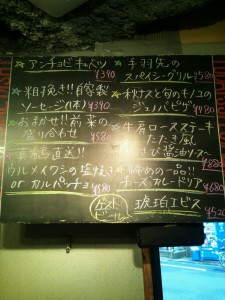 アンチョビキャベツ
¥390
粗挽き!!自家製
ソーセージ(1本)¥390
おまかせ!!前菜の
盛り合わせ
¥580
直送!!
ウルメイワシの塩焼き
orカルパッチョ
¥580
手羽先の
スパイシーグリル¥580
秋ナスと旬のキノコの
ジェノバピザ
¥780
牛肩ロースステーキ
たたき風
わさび醤油ソース
¥880
締めの一品!!
チーズカレードリア
¥680
ゲスト
ビール
琥珀エビス
¥520